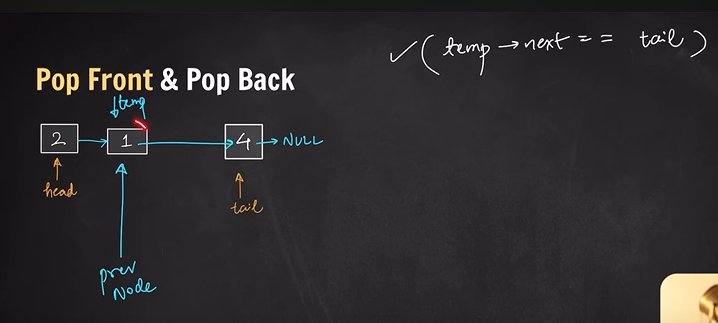 ✓ (temp → next == tail)
Pop Front & Pop Back
↓temp
2 → 1 → 4 → NULL
head
tail
prev
Node